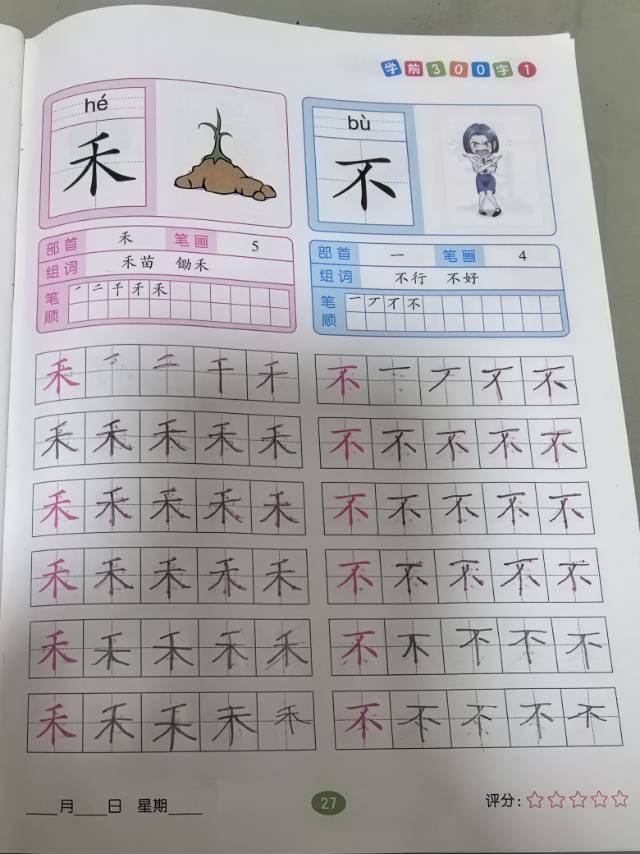 学前300字1
hé
禾
部首 禾 笔画 5
组词 禾苗 锄禾
笔顺 一 二 千 禾 禾
bù
不
部首 一 笔画 4
组词 不行 不好
笔顺 一 丆 不 不
禾 一 二 千 禾
禾 禾 禾 禾 禾
禾 禾 禾 禾 禾
禾 禾 禾 禾 禾
禾 禾 禾 禾 禾
禾 禾 禾 禾 禾
不 一 丆 不 不
不 不 不 不 不
不 不 不 不 不
不 不 不 不 不
不 不 不 不 不
不 不 不 不 不
____月____日 星期____
27
评分:☆☆☆☆☆